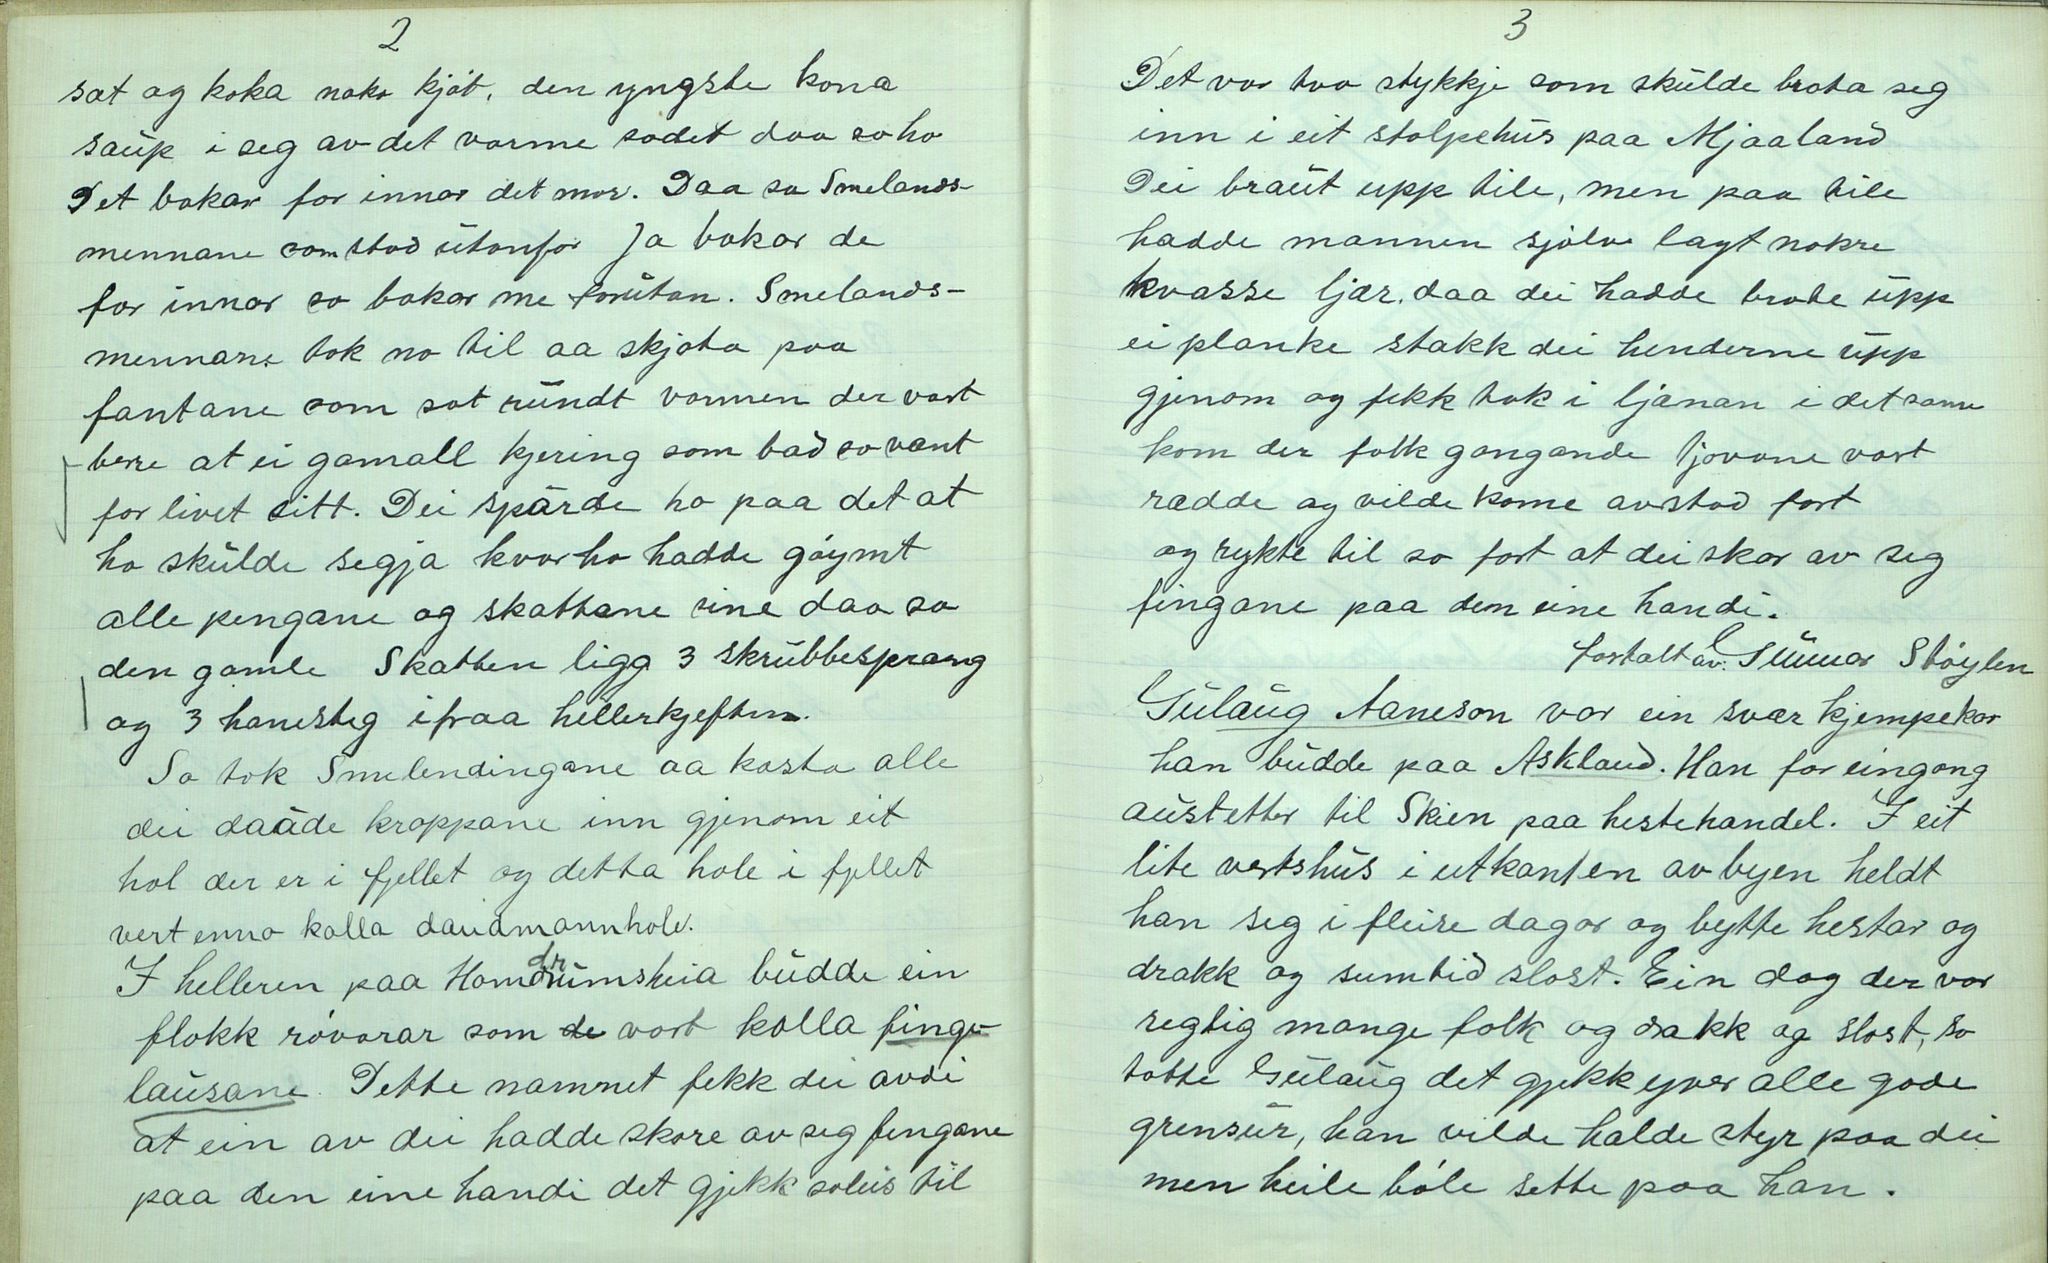 2
sat og koka noko kjöt, den yngste kona
saup i seg av det varme sodet daa sa ho
Det bakar for innar det mor. Daa sa Smelands-
mennane som stod utanfor Ja bakar de
for innar so bakar me forutan. Smelands-
mennane tok no til aa skjota paa
fantane som sat rundt varmen der vart
berre at ei gamall kjering som bad so vent
for livet sitt. Dei sparde ho paa det at
ho skulde segja kvar ho hadde göymt
alle pengane og skattane sine daa sa
den gamle Skatten ligg 3 skrubbesprang
og 3 hanesteg ifraa hellerkjeften.
So tok Smelendingane aa kasta alle
dei daude kroppane inn gjenom eit
hol der er i fjellet og detta hole i fjellet
vert enno kalla daudmannhole.
I helleren paa Homdrumsheia budde ein
flokk rövarar som de vart kalla finge-
lausane. Dette namnet fekk dei avdi
at ein av dei hadde skore av seg fingane
paa den eine handi det gjekk soleis til
3
Det var tvo stykkje som skulde brota seg
inn i eit stolpehus paa Mjaaland
Dei braut upp tile, men paa tile
hadde mannen sjölve lagt nokre
kvasse ljær. daa dei hadde brote upp
ei planke stakk dei henderne upp
gjenom og fekk tak i ljænan i det same
kom der folk gangande tjovane vart
rædde og vilde kome avstad fort
og rykte til so fort at dei skar av seg
fingane paa den eine handi.
fortalt av. Gunnar Stöylen
Gulaug Aaneson var ein svær kjempekar
han budde paa Askland. Han for eingong
austetter til Skien paa hestehandel. I eit
lite vertshus i utkanten av byen heldt
han seg i fleire dagar og bytte hestar og
drakk og sumtid slost. Ein dag der var
regtig mange folk og drakk og slost, so
totte Gulaug det gjekk yver alle gode
grensur, han vilde halde styr paa dei
men heile böle sette paa han.